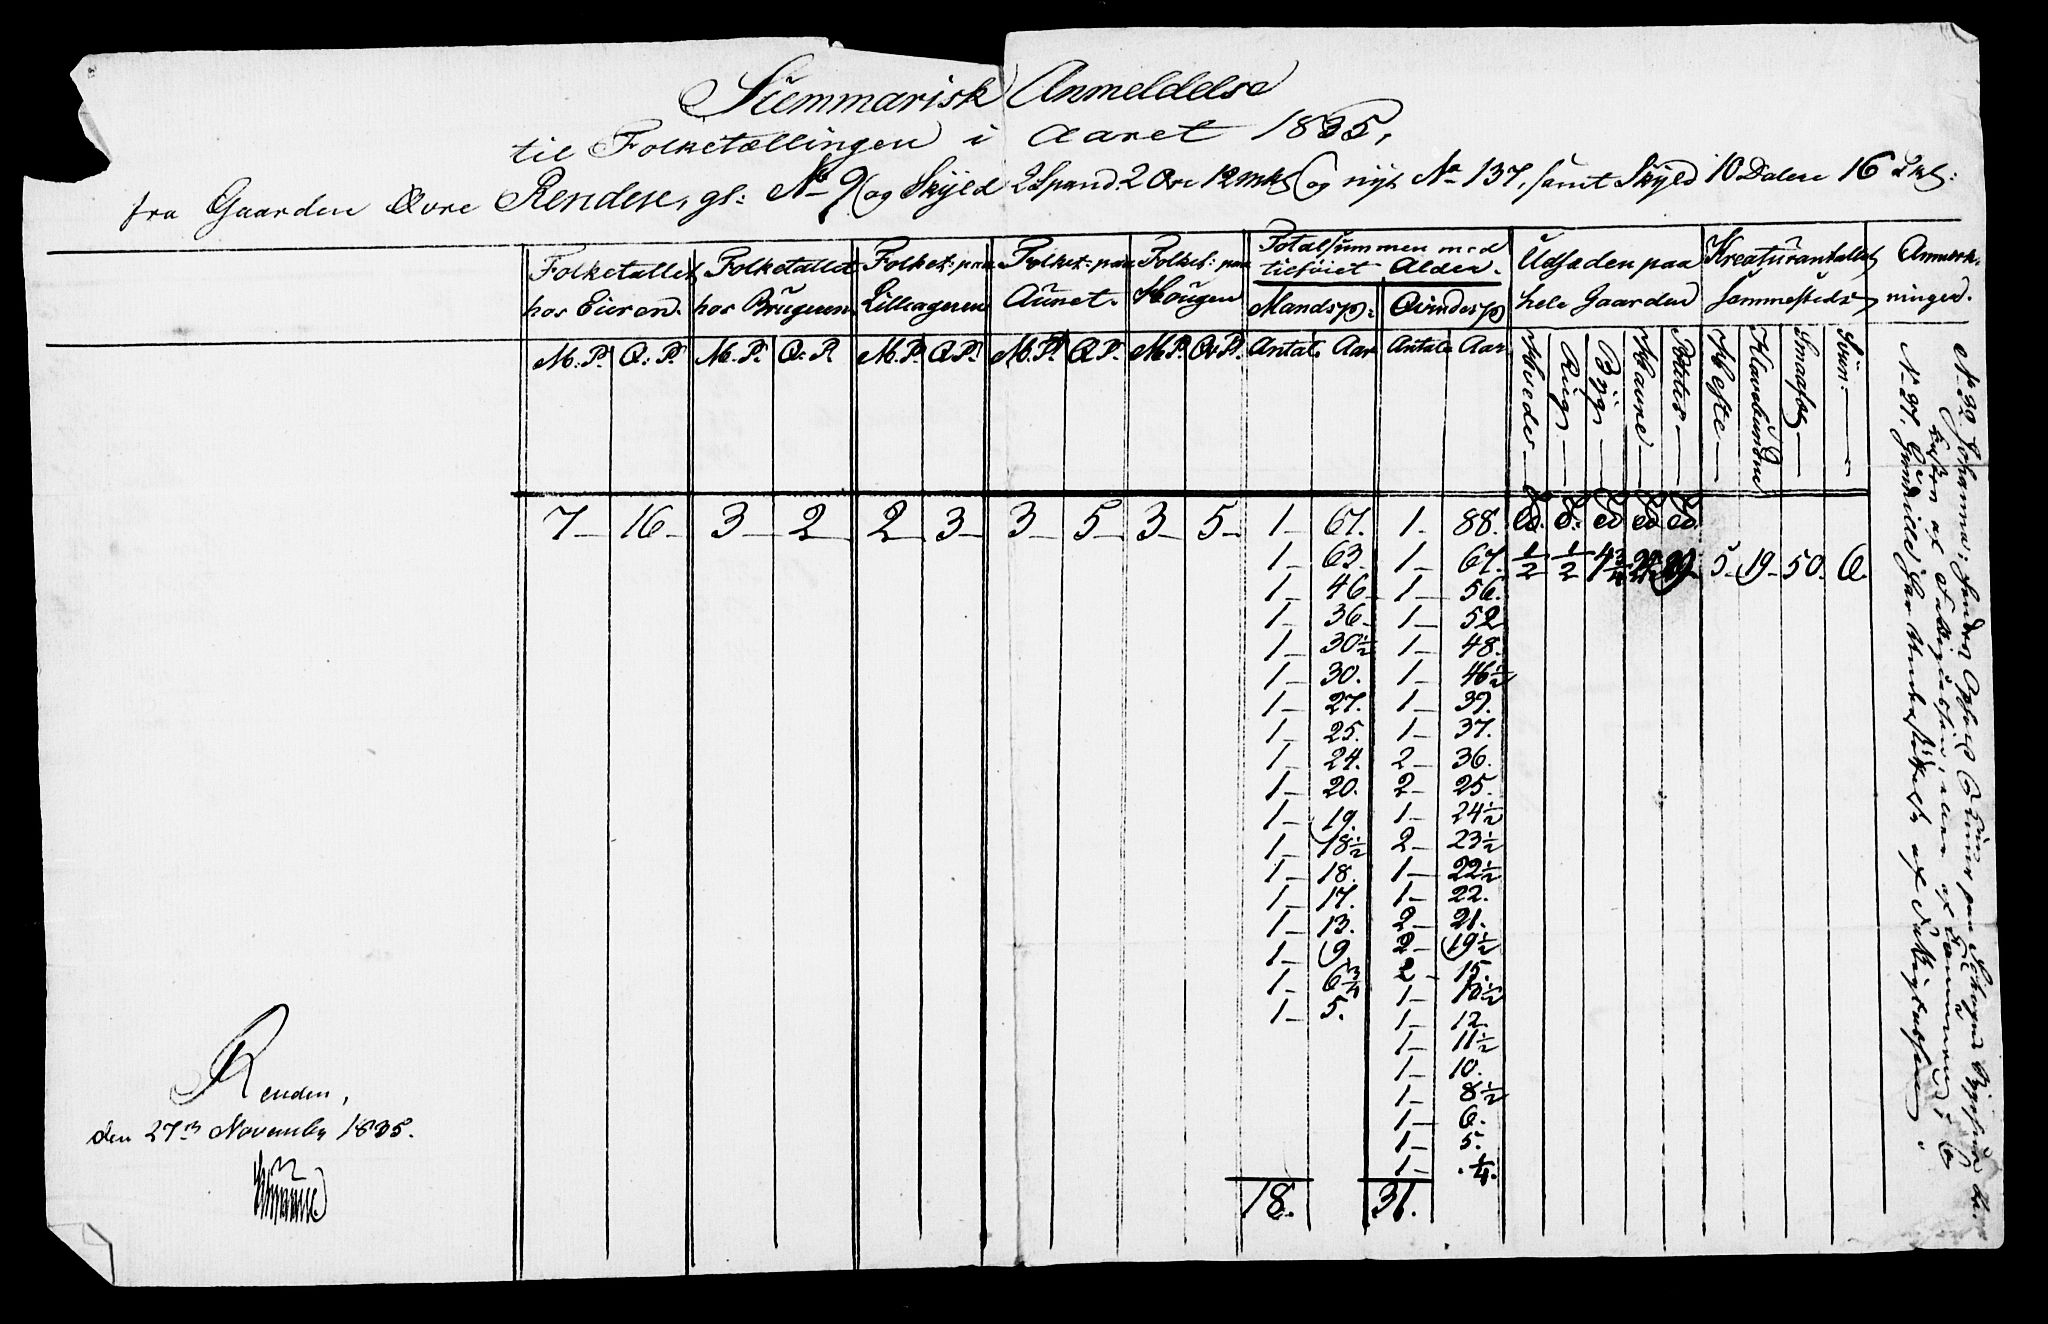 Summarisk Anmeldelse
til Folketællingen i Aaret 1835,
fra Gaarden Øvre Renden, gl: No 9 (og Skyld 2 Spand 2 Øre 12 mk) og nyt No 137, samt Skyld 10 Daler 16
Folketallet hos Eieren.
Folketallet hos Brugeren
Folket: paa Lilleageren
Folket: paa Aunet.
Folket: paa Hougen
Totalsummen med tilföiet Alder.
Udsæden paa hele Gaarden
Kreaturantallet sammesteds
Anmærkninger.
Mandsp: Qvindesp
M: P. Q: P. M. P. Q. P. M. P. Q P. M. P. Q P. M P. Qv P. Antal Aar Antal Aar
Hvede Rug Byg Havre Potetes Heste Smaafæ Sviin
7 16 3 2 2 3 3 5 3 5 1 67. 1 88.
1 63. 1 67. 1/2 1/2 5 19 50. 6.
1 46 1 56.
1 36 1 52
1 30 1/2 1 48.
1 30. 1 46 1/2
1 27. 1 39.
1 25. 1 37.
1 24. 2 36.
1 20. 2 25.
1 19. 1 24 1/2
1 18 1/2 2 23 1/2
1 18. 1 22 1/2
1 17. 1 22.
1 13. 2 21.
1 9 2 19 1/2
1 6 3/4 2 15.
1 5. 1
1 12.
1 11 1/2
1 10.
1 8 1/2
1 6.
1 5.
1 1/4.
18. 31.
No 27, Gunild har Understöttelse af Fattigkassen.
Renden,
den 27de November 1835.